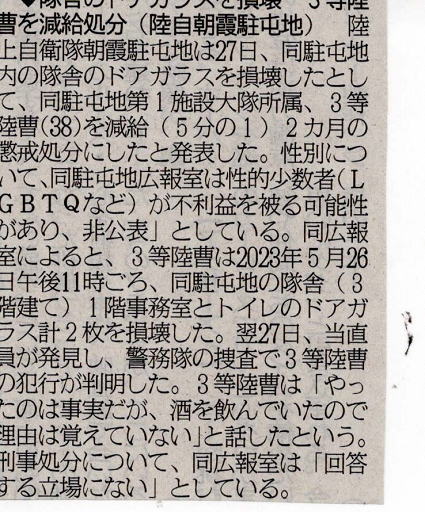 ◆隊舎のドアガラスを損壊 3等陸
曹を減給処分（陸自朝霞駐屯地） 陸
上自衛隊朝霞駐屯地は27日、同駐屯地
内の隊舎のドアガラスを損壊したとし
て、同駐屯地第１施設大隊所属、３等
陸曹(38)を減給（５分の１）２カ月の
懲戒処分にしたと発表した。性別につ
いて、同駐屯地広報室は性的少数者（Ｌ
ＧＢＴＱなど）が不利益を被る可能性
があり、非公表」としている。同広報
室によると、３等陸曹は2023年５月26
日午後11時ごろ、同駐屯地の隊舎（３
階建て）１階事務室とトイレのドアガ
ラス計２枚を損壊した。翌27日、当直
員が発見し、警務隊の捜査で３等陸曹
の犯行が判明した。３等陸曹は「やっ
たのは事実だが、酒を飲んでいたので
理由は覚えていない」と話したという。
刑事処分について、同広報室は「回答
する立場にない」としている。